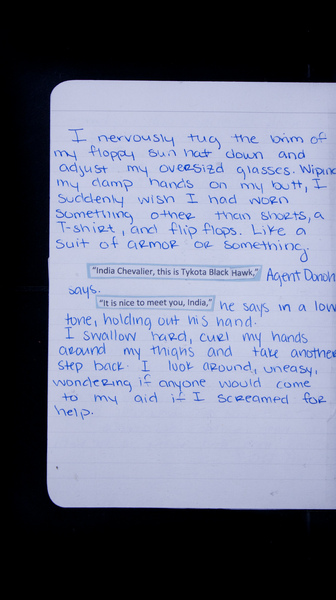 I nervously tug the brim of
my floppy sun hat down and
adjust my oversizd glasses. Wiping
my damp hands on my butt, I
suddenly wish I had worn
something other than shorts, a
T-shirt, and flip flops. Like a
suit of armor or something.
"India Chevalier, this is Tykota Black Hawk," Agent Donoh
says.
"It is nice to meet you, India," he says in a low
tone, holding out his hand.
I swallow hard, curl my hands
around my thighs and take another
step back. I look around, uneasy,
wondering if anyone would come
to my aid if I screamed for
help.